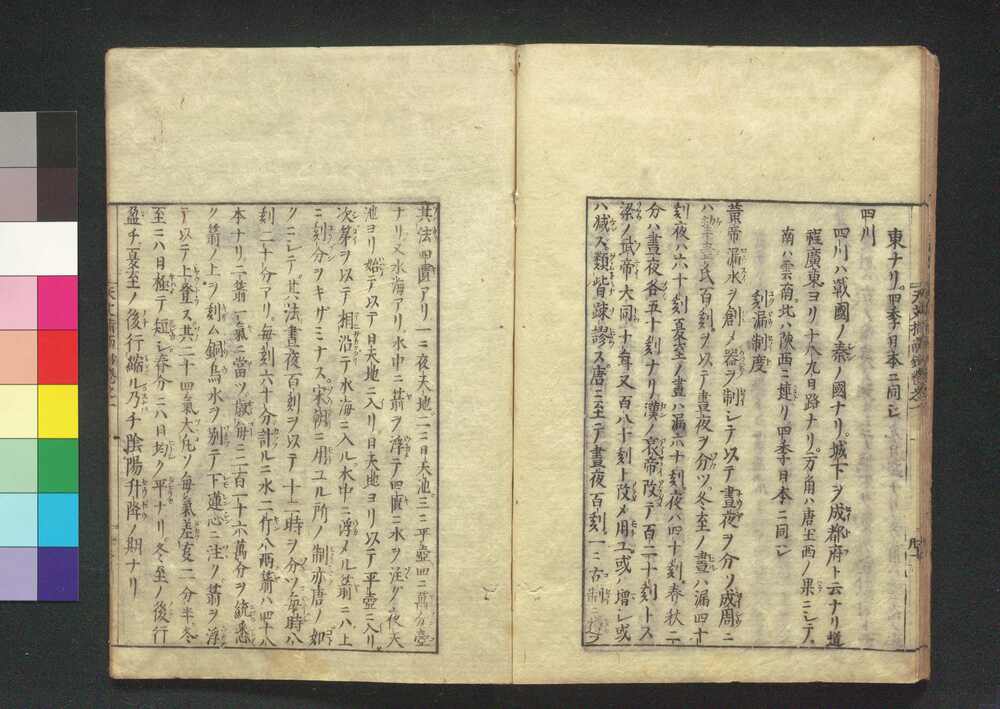 東ナリ。四季日本ニ同シ
四川
四川ハ戦國ノ秦ノ國ナリ。城下ヲ成都府ト云ナリ道
程廣東ヨリ十八九日路ナリ。方角ハ唐土西ノ果ニシテ。
南ハ雲南。北ハ陝西ニ連リ四季日本ニ同シ
刻漏制度
黄帝漏水ヲ創メ器ヲ制シテ以テ晝夜ヲ分ツ。成周ニ
ハ挈壷氏百刻ヲ以テ晝夜ヲ分ツ。冬至ノ晝ハ漏四十
刻夜ハ六十刻夏至ノ晝ハ漏六十刻夜ハ四十刻春秋二
分ハ晝夜各五十刻ナリ漢ノ哀帝改テ百二十刻トス
梁ノ武帝大同十年又百八十刻ト改メ用ユ或ハ増シ或
ハ減ス類皆疎謬ス唐ニ至テ晝夜百刻。一ニ古制ニ
其法四匱アリ。一ニ夜天地二ニ日天池三ニ平壺四ニ萬分壺
ナリ又水海アリ。水中ニ箭ヲ浮テ四匱ニ水ヲ注グ夜天
池ヨリ始テ以テ日天地ニ入リ。日天地ヨリ以テ平壺ニ入リ
次第ヲ以テ相沿テ水海ニ入ル水中ニ浮メル箭ニハ上
ニ刻分ヲキザミナス。宋朝ニ用ユル所ノ制亦唐ノ如
クニシテ其法晝夜百刻ヲ以テ十二時ヲ分ツ毎時八
刻二十分アリ。毎刻六十分計ルニ水二斤八兩箭八四十八
本ナリ二箭一氣ニ當ツ歳毎ニ二百一十六萬分ヲ統悉
ク箭ノ上ヲ刻ム銅烏水ヲ引テ下蓮心ニ注ノ箭ヲ浮
テ以テ上登ス其二十四氣大凡ソ毎氣差亥二分半冬
至ニハ日極テ短シ春分ニハ日均ク平ナリ。冬至ノ後行
盈チ夏至ノ後行縮ル乃チ陰陽升降ノ期ナリ